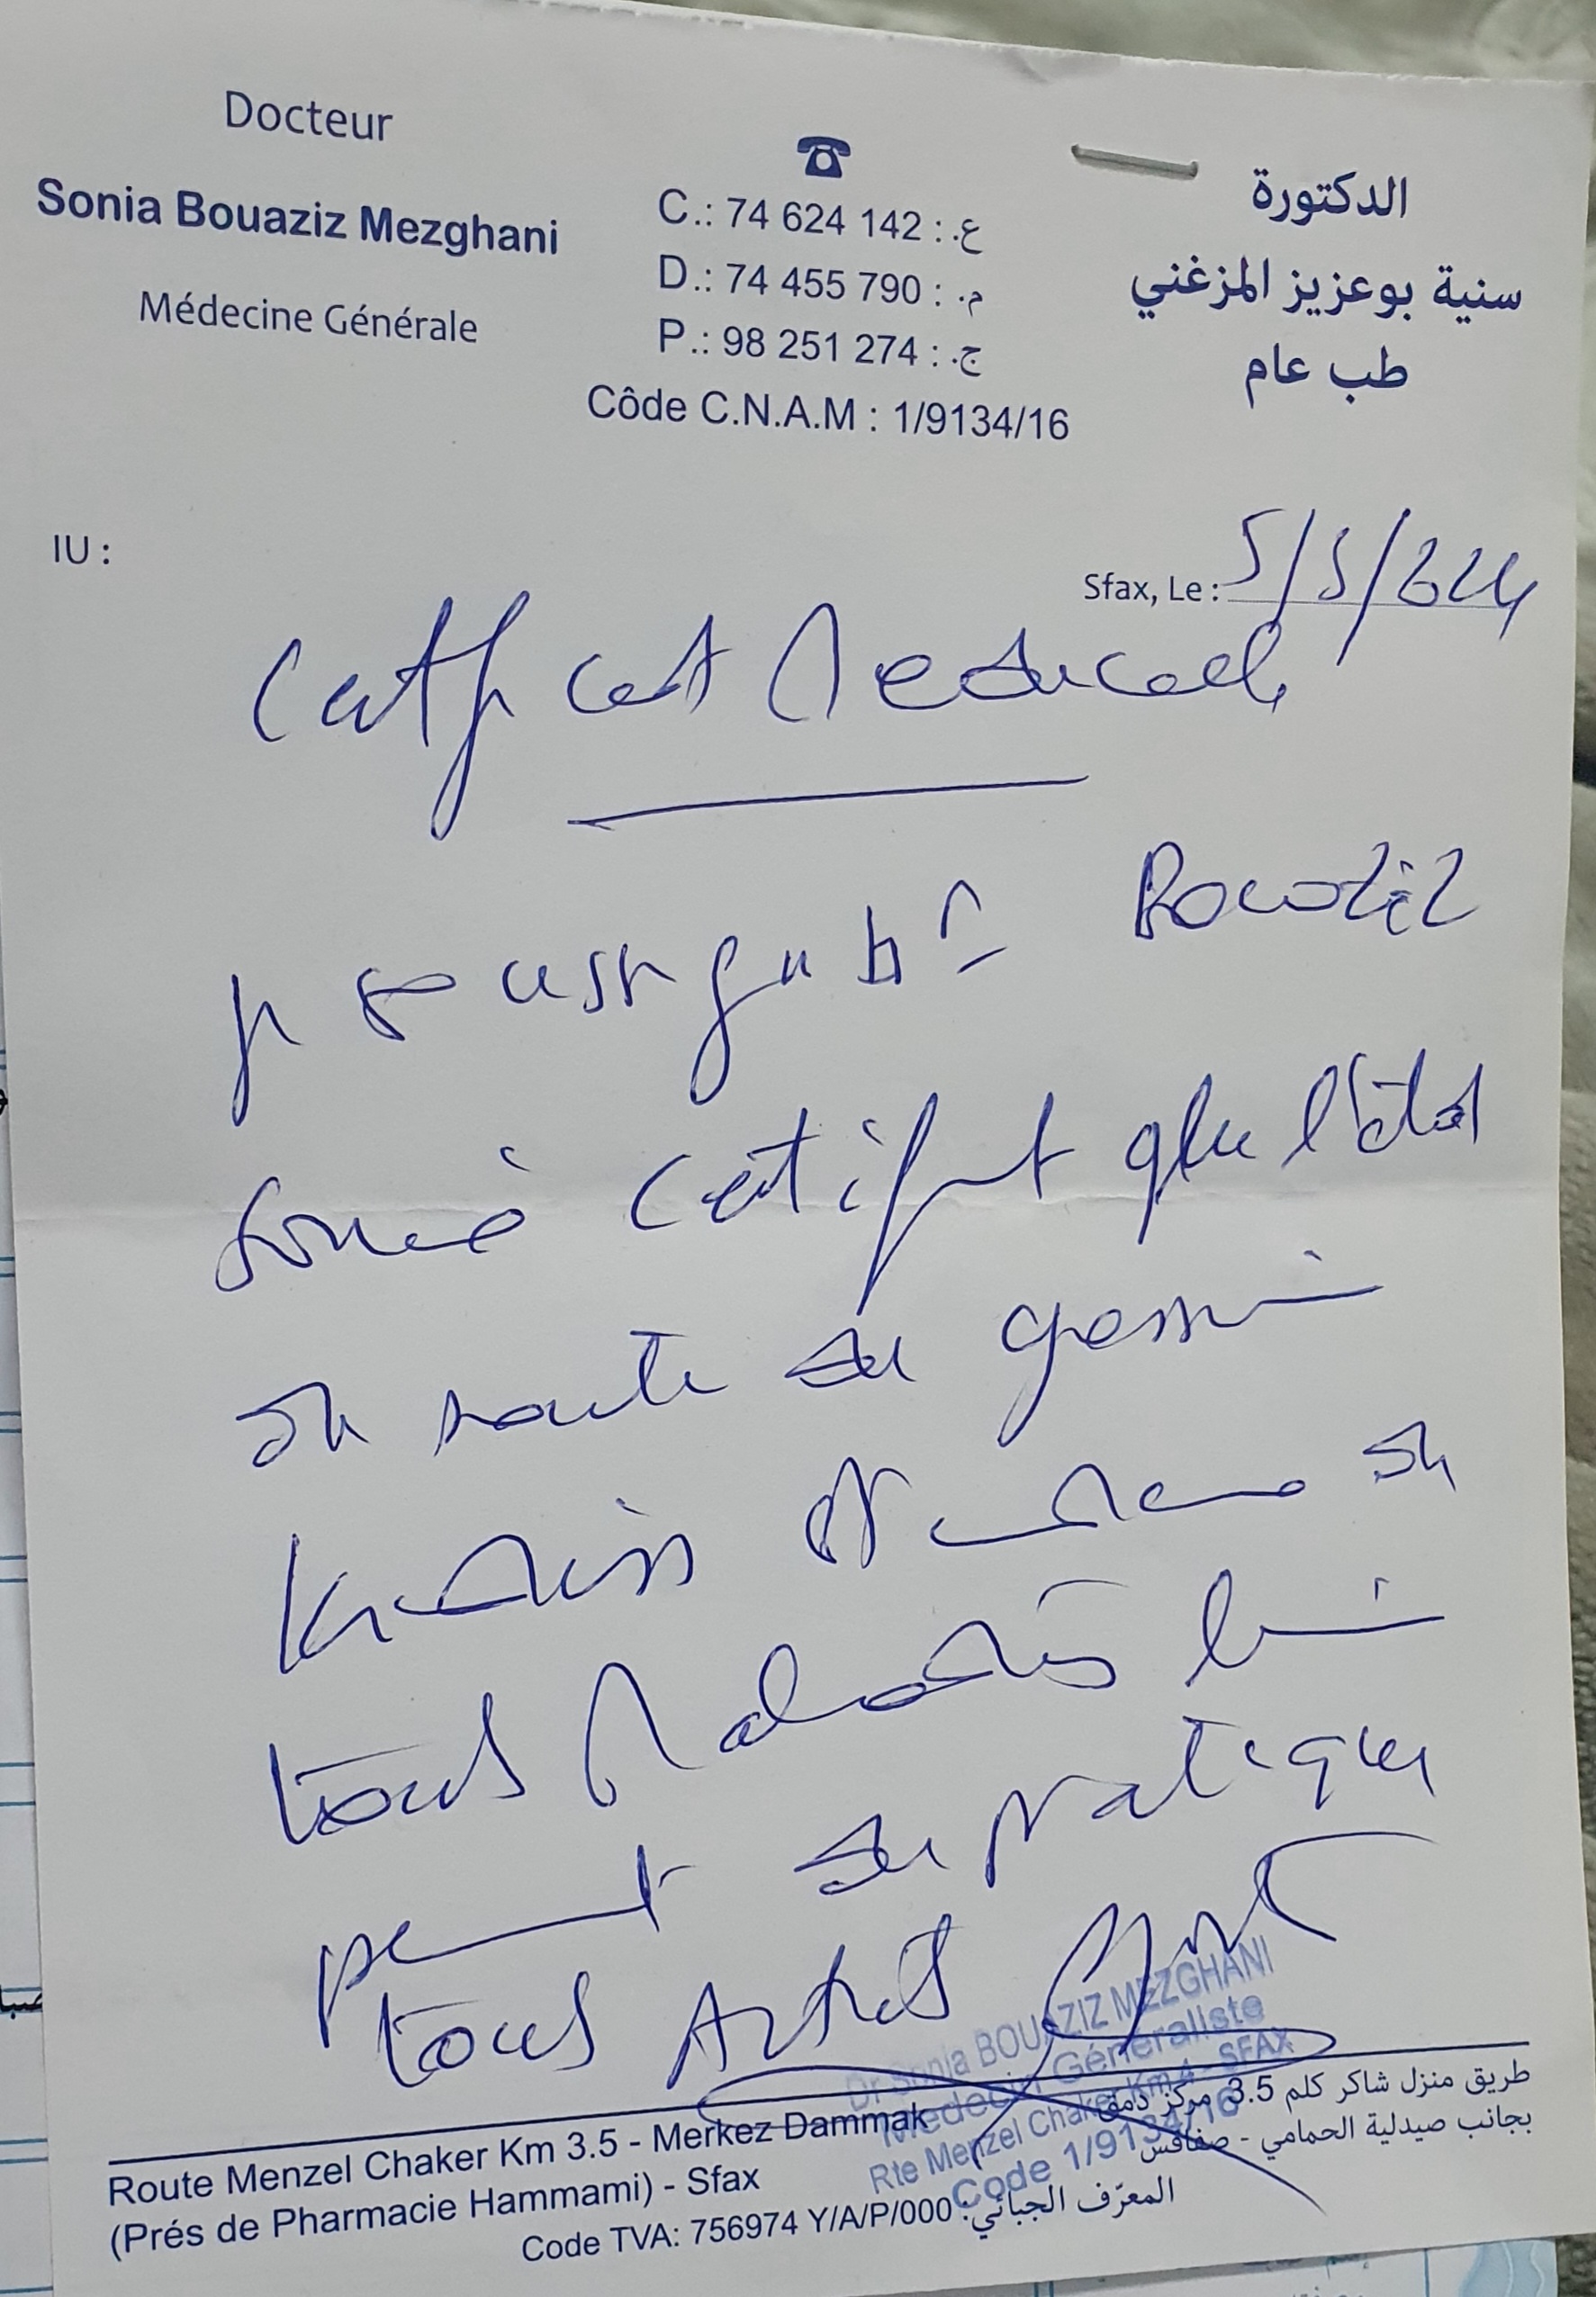 Docteur
Sonia Bouaziz Mezghani
Médecine Générale
☎
C.: 74 624 142 : ع.
D.: 74 455 790 : م.
P.: 98 251 274 : ج.
Côde C.N.A.M : 1/9134/16
الدكتورة
سنية بوعزيز المزغني
طب عام
IU :
Sfax, Le : 5/5/2024
Certificat Medical
Je soussignée Dr Bouaziz
Sonia certifie que l'état
de santé de
de
tous maladies
peut de pratiquer
tous
Dr Sonia BOUAZIZ MEZGHANI
Médecin Généraliste
Rte Menzel Chaker Km 4 - SFAX
Code 1/9134/16
Route Menzel Chaker Km 3.5 - Merkez Dammak
(Prés de Pharmacie Hammami) - Sfax
طريق منزل شاكر كلم 3.5 مركز دمق
بجانب صيدلية الحمامي - صفاقس
Code TVA: 756974 Y/A/P/000 : المعرّف الجبائي